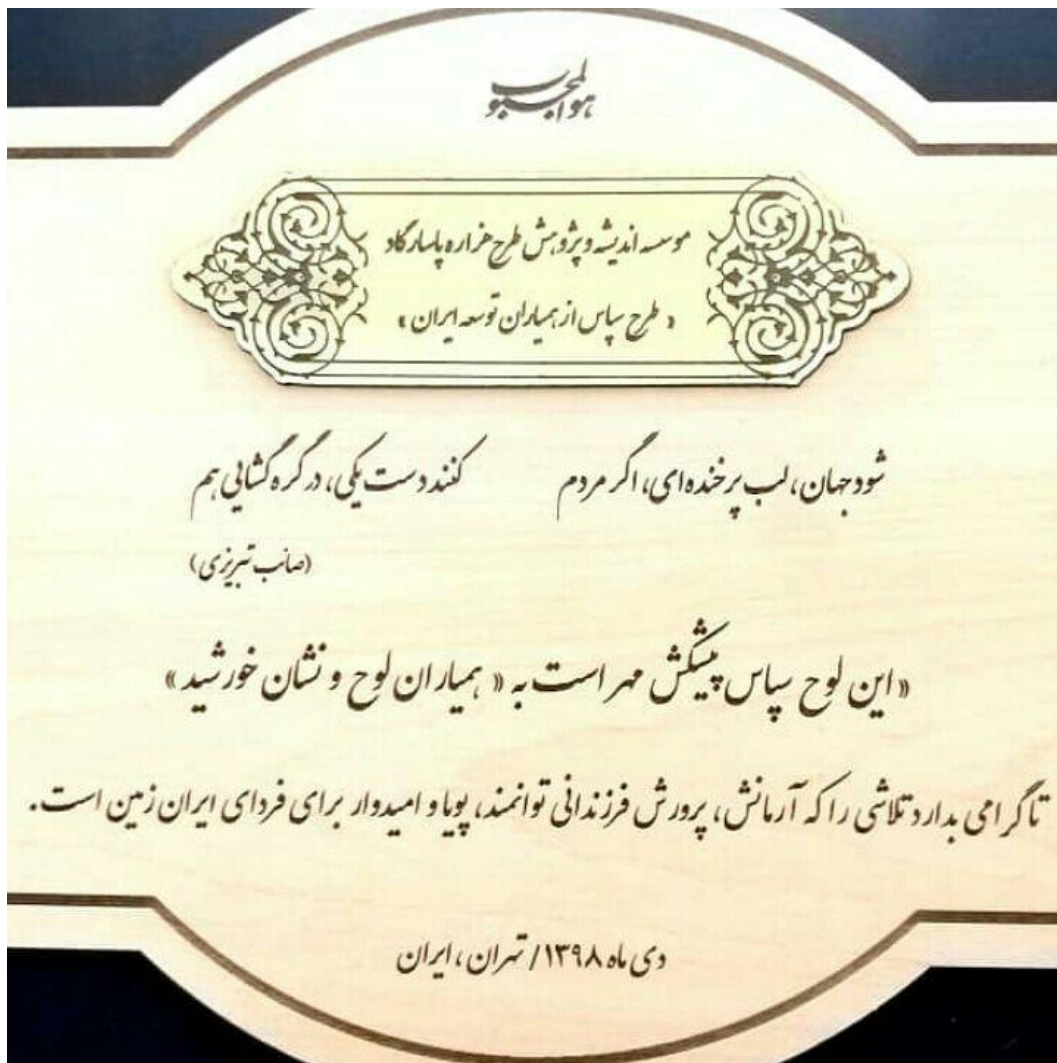 هوالمحبوب
موسسه اندیشه و پژوهش طرح هزاره پاسارگاد
« طرح سپاس از همیاران توسعه ایران »
شود جهان، لب پرخنده‌ای، اگر مردم کنند دست یکی، در گره گشایی هم
(صائب تبریزی)
«این لوح سپاس پیشکش مهر است به « همیاران لوح و نشان خورشید »
تا گرامی بدارد تلاشی را که آرمانش، پرورش فرزندانی توانمند، پویا و امیدوار برای فردای ایران زمین است.
دی ماه ۱۳۹۸/ تهران، ایران